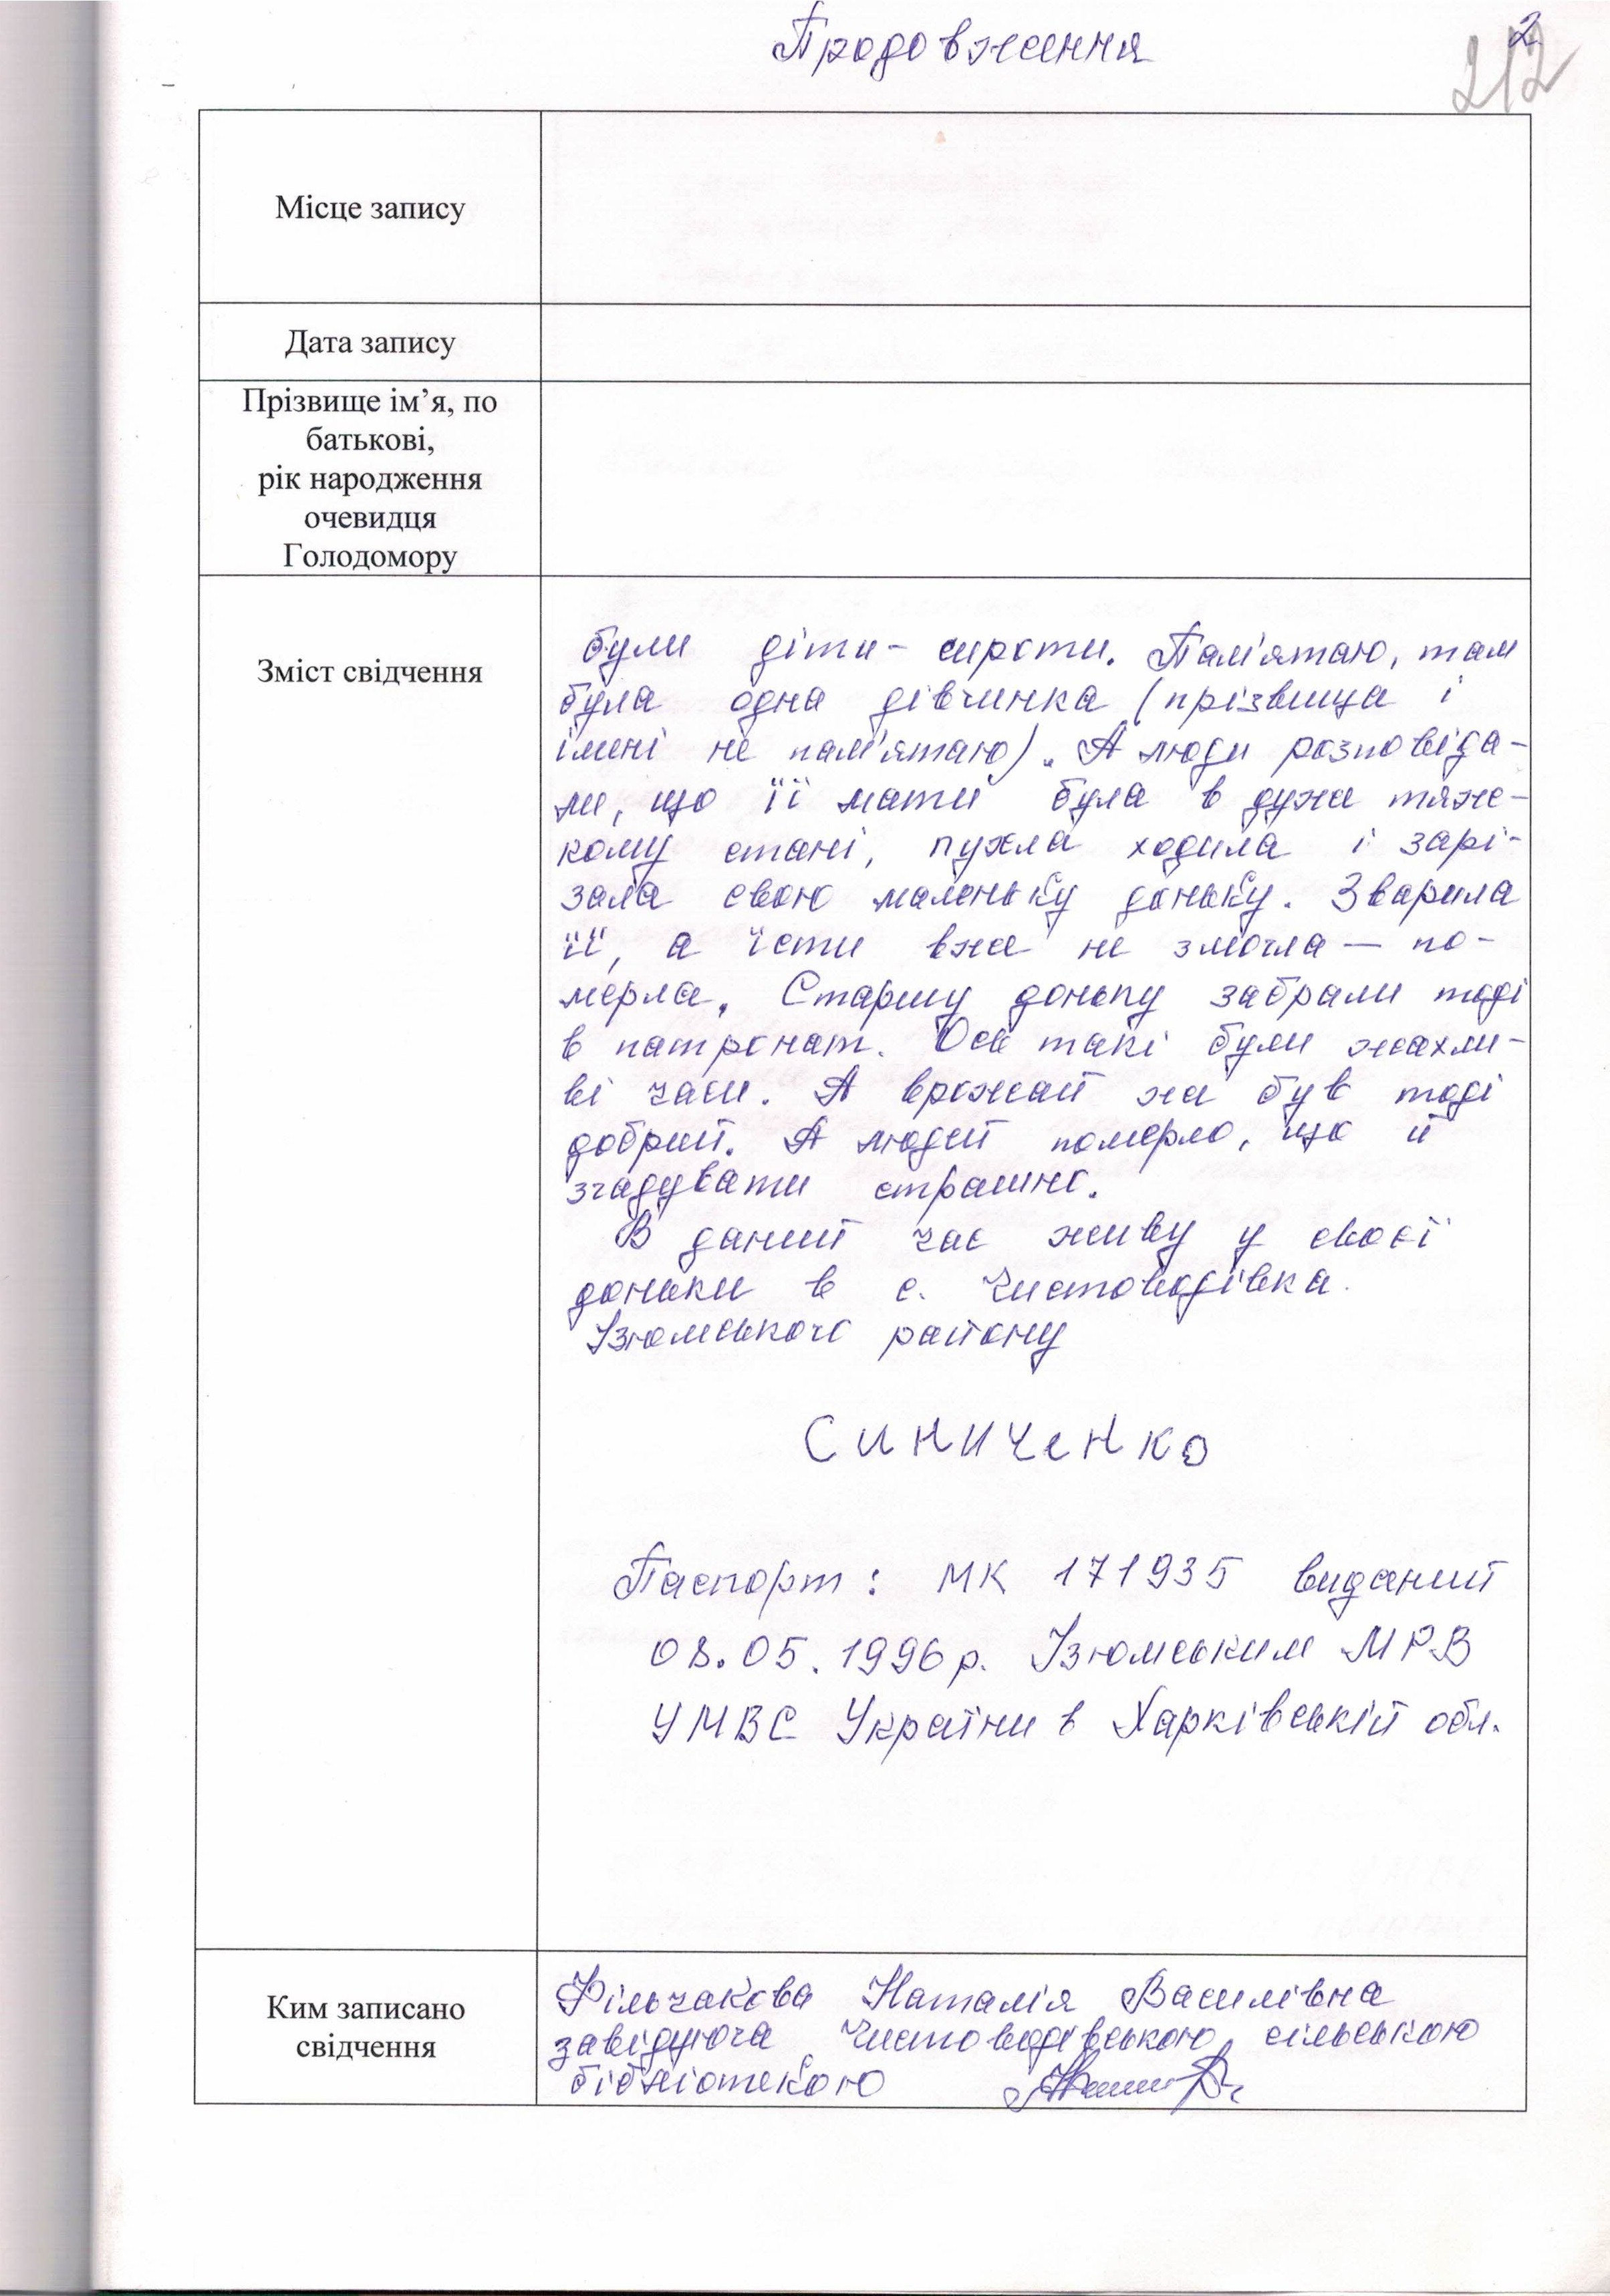 Продовження
2
212
Місце запису
Дата запису
Прізвище ім’я, по
батькові,
рік народження
очевидця
Голодомору
Зміст свідчення
були діти - сироти. Пам'ятаю, там
була одна дівчинка (прізвища і
імені не пам'ятаю). А люди розповіда-
ли, що її мати була в дуже тяж-
кому стані, пухла ходила і зарі-
зала свою маленьку доньку. Зварила
її, а їсти вже не змогла — по-
мерла. Старшу доньку забрали тоді
в патронат. Ось такі були жахли-
ві часи. А врожай же був тоді
добрий. А людей померло, що й
згадувати страшно.
В даний час живу у своєї
доньки в с. Чистоводівка
Ізюмського району
Синиченко
Паспорт: МК 171935 виданий
08.05.1996 р. Ізюмським МРВ
УМВС України в Харківській обл.
Ким записано
свідчення
Фільчакова Наталія Василівна
завідуюча Чистоводівською сільською
бібліотекою